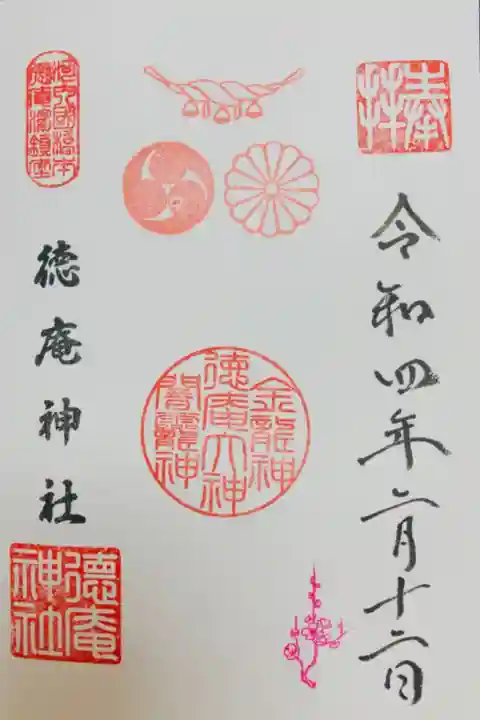 捧拝
令和四年六月十六日
金龍神
徳庵大神
闇龗神
徳庵神社
徳庵
神社